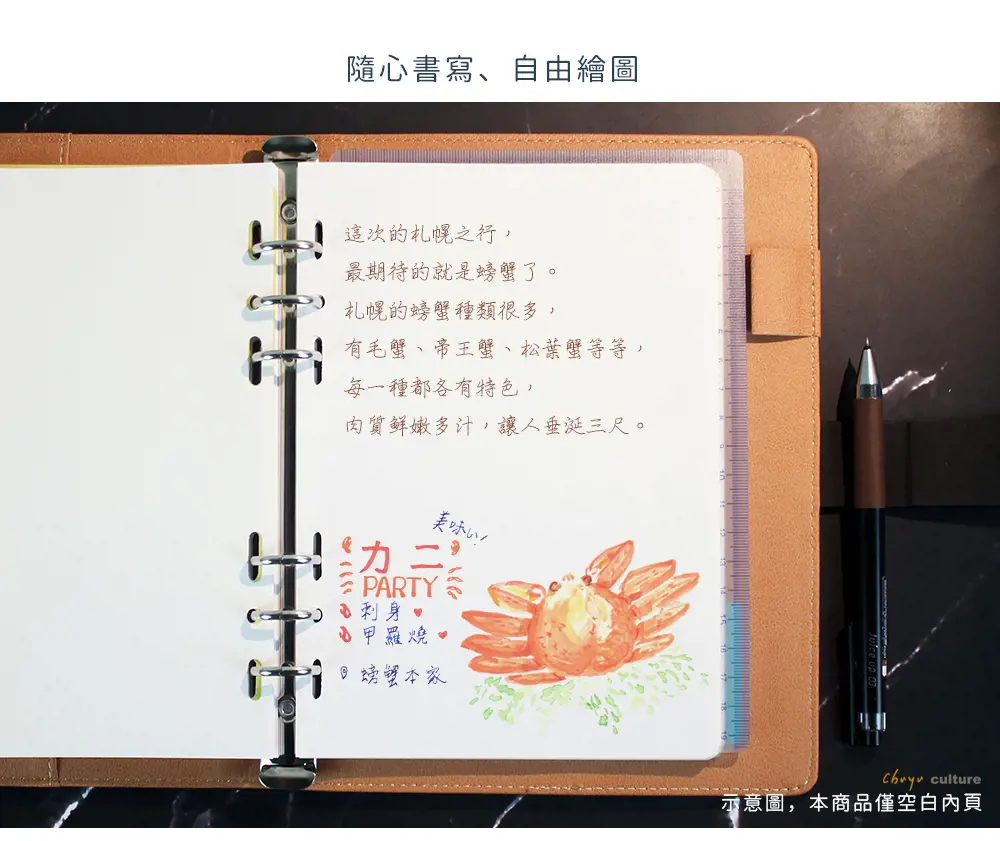 隨心書寫、自由繪圖
這次的札幌之行，
最期待的就是螃蟹了。
札幌的螃蟹種類很多，
有毛蟹、帝王蟹、松葉蟹等等，
每一種都各有特色，
肉質鮮嫩多汁，讓人垂涎三尺。
美味しい
カニ
PARTY
刺身
甲羅燒
螃蟹本家
Juice up 03
Chuyu culture
示意圖，本商品僅空白內頁